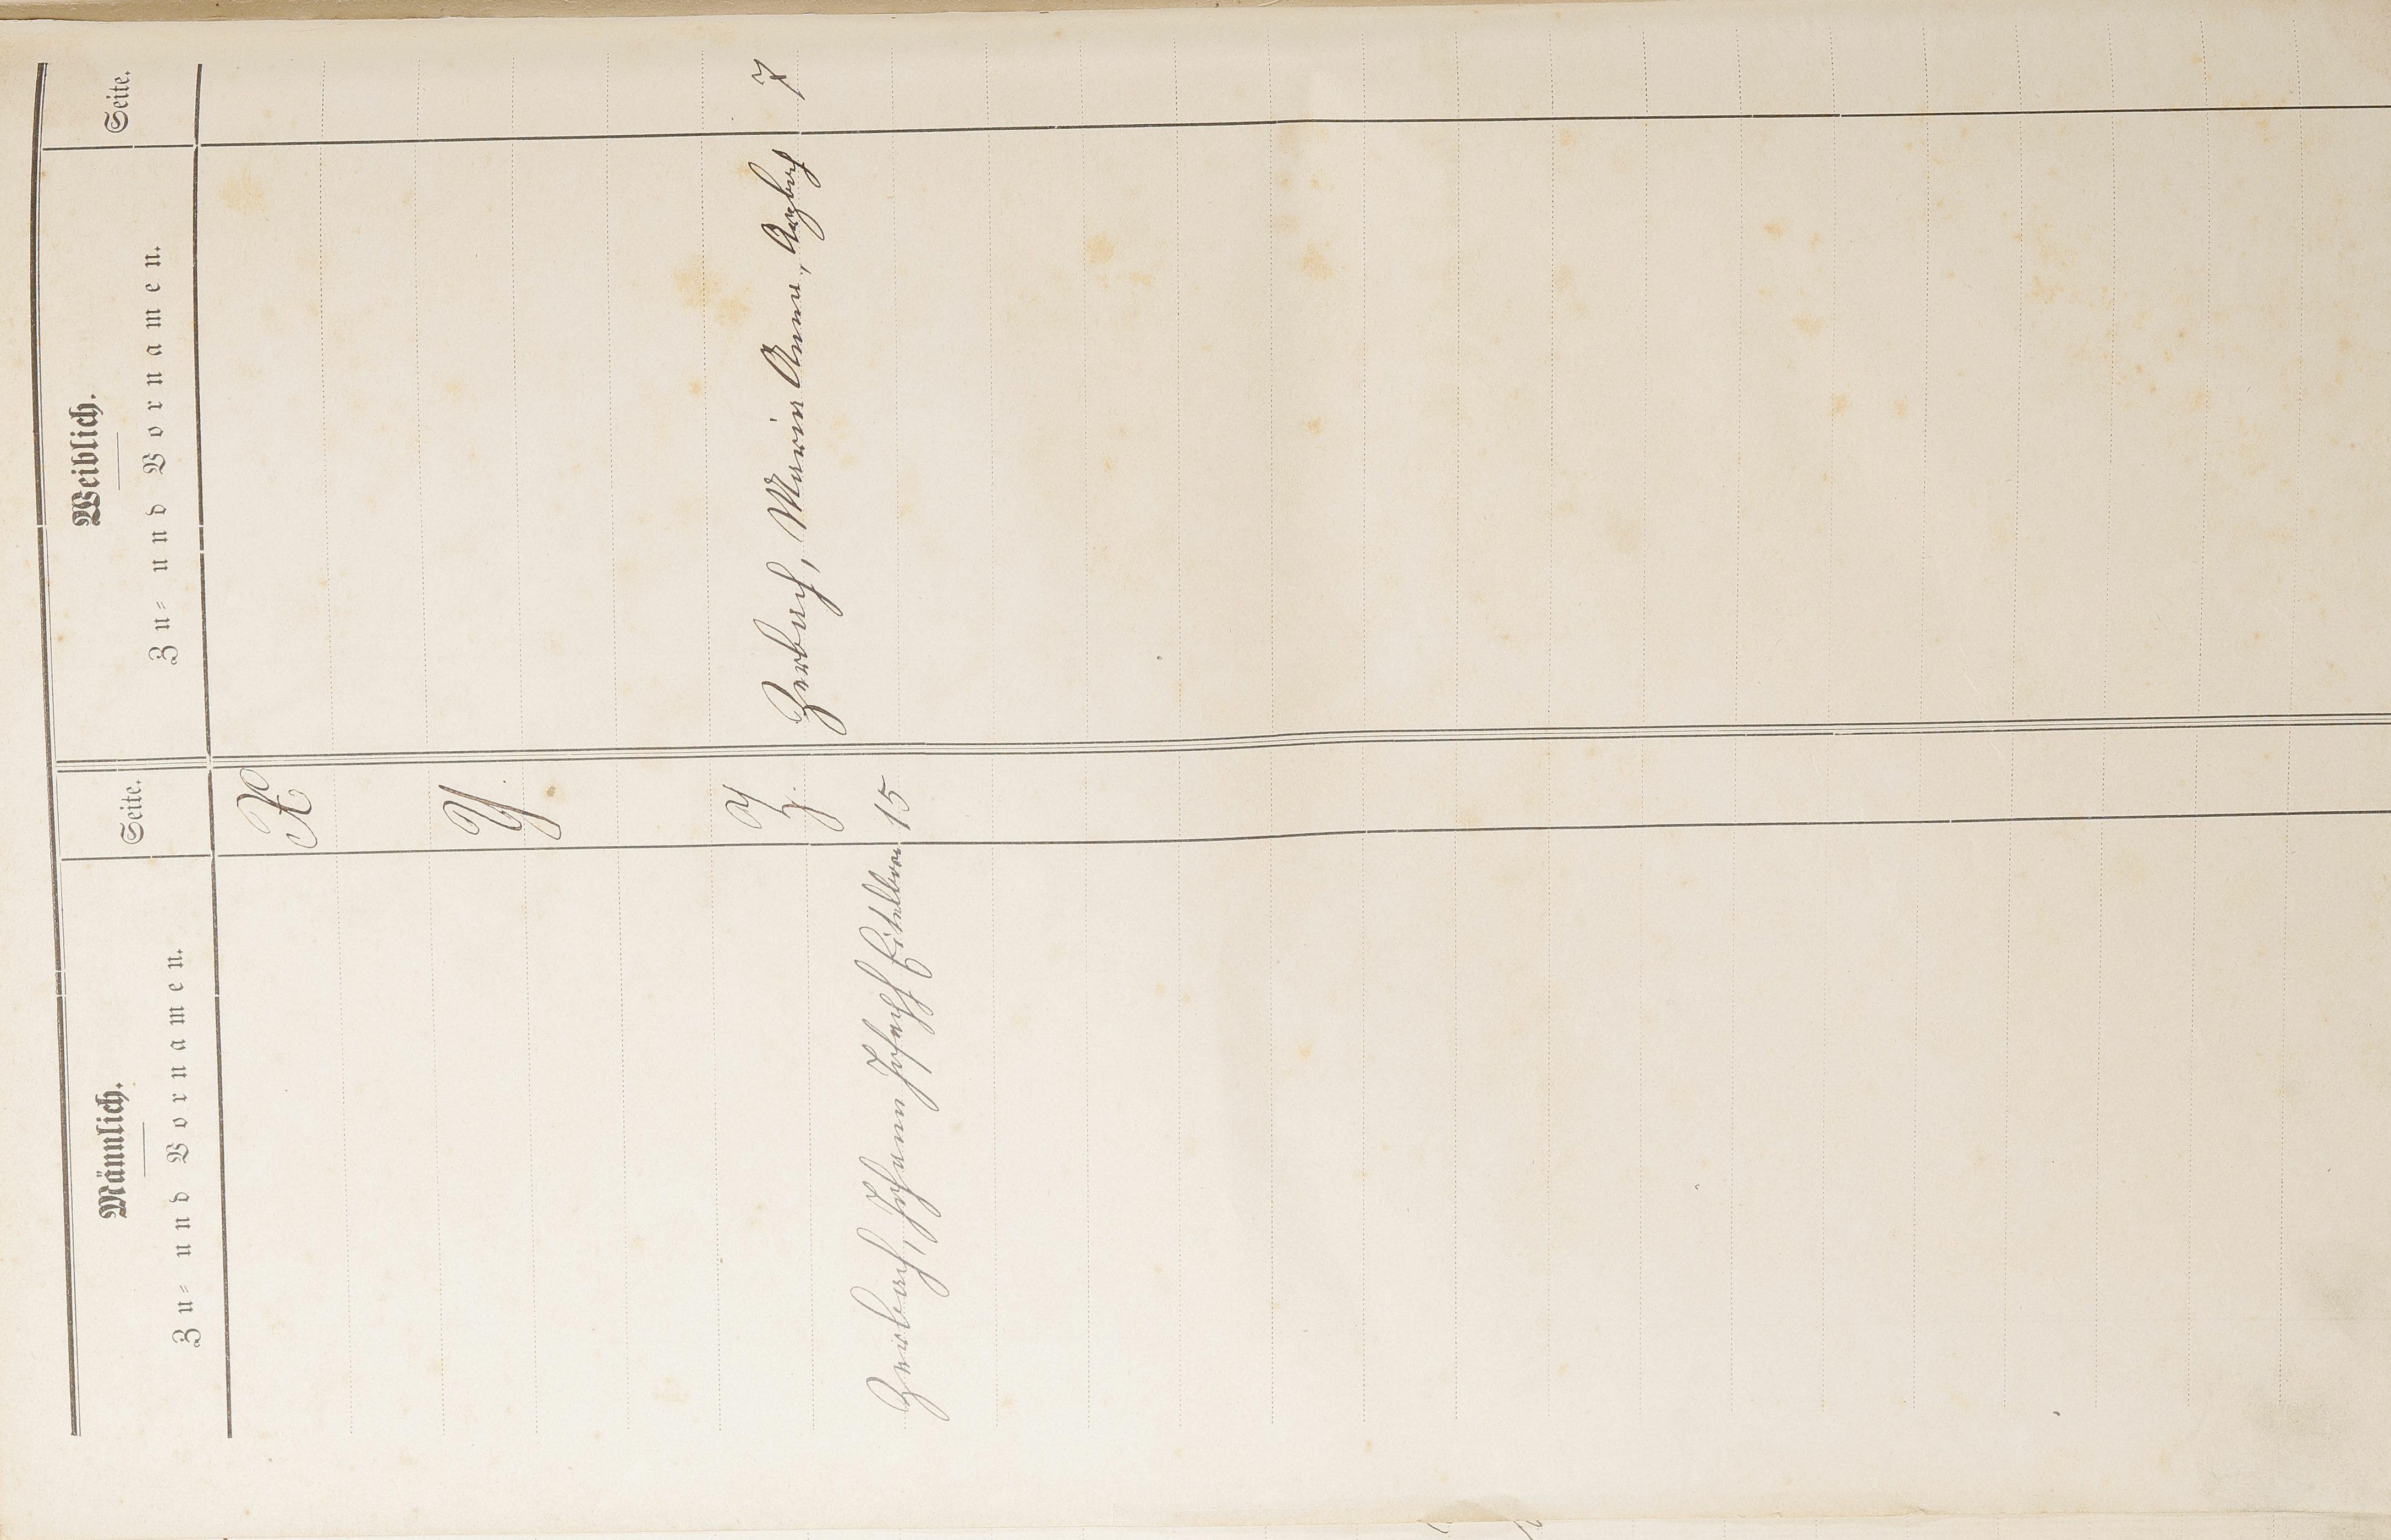 Männlich. Weiblich.
Zu- und Vornamen. Seite. Zu- und Vornamen. Seite.
X
Y.
Z.
Zerbach, Maria Anna, 7
Zerbach, Johann Joseph 15